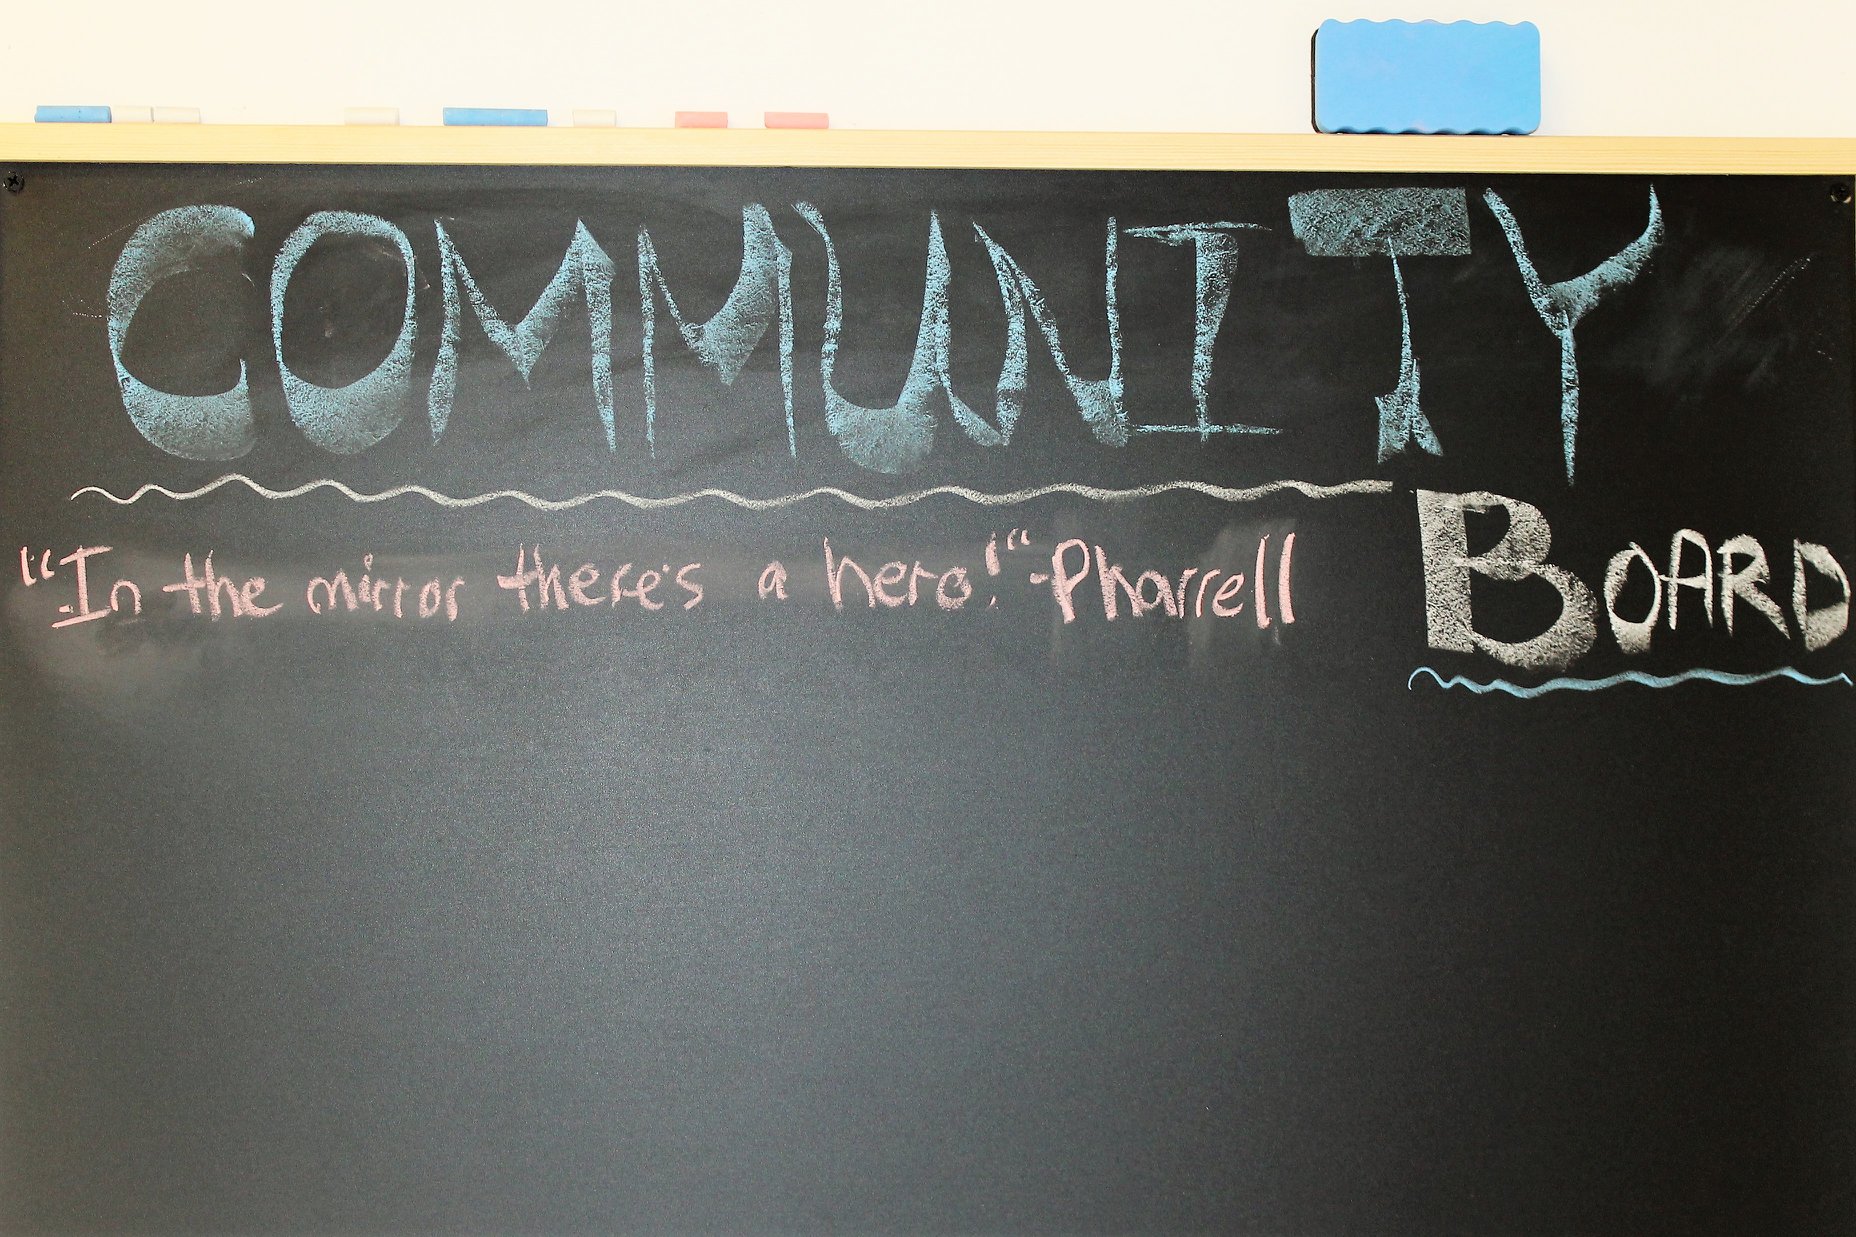 COMMUNITY
BOARD
"In the mirror there's a hero!" -Pharrell